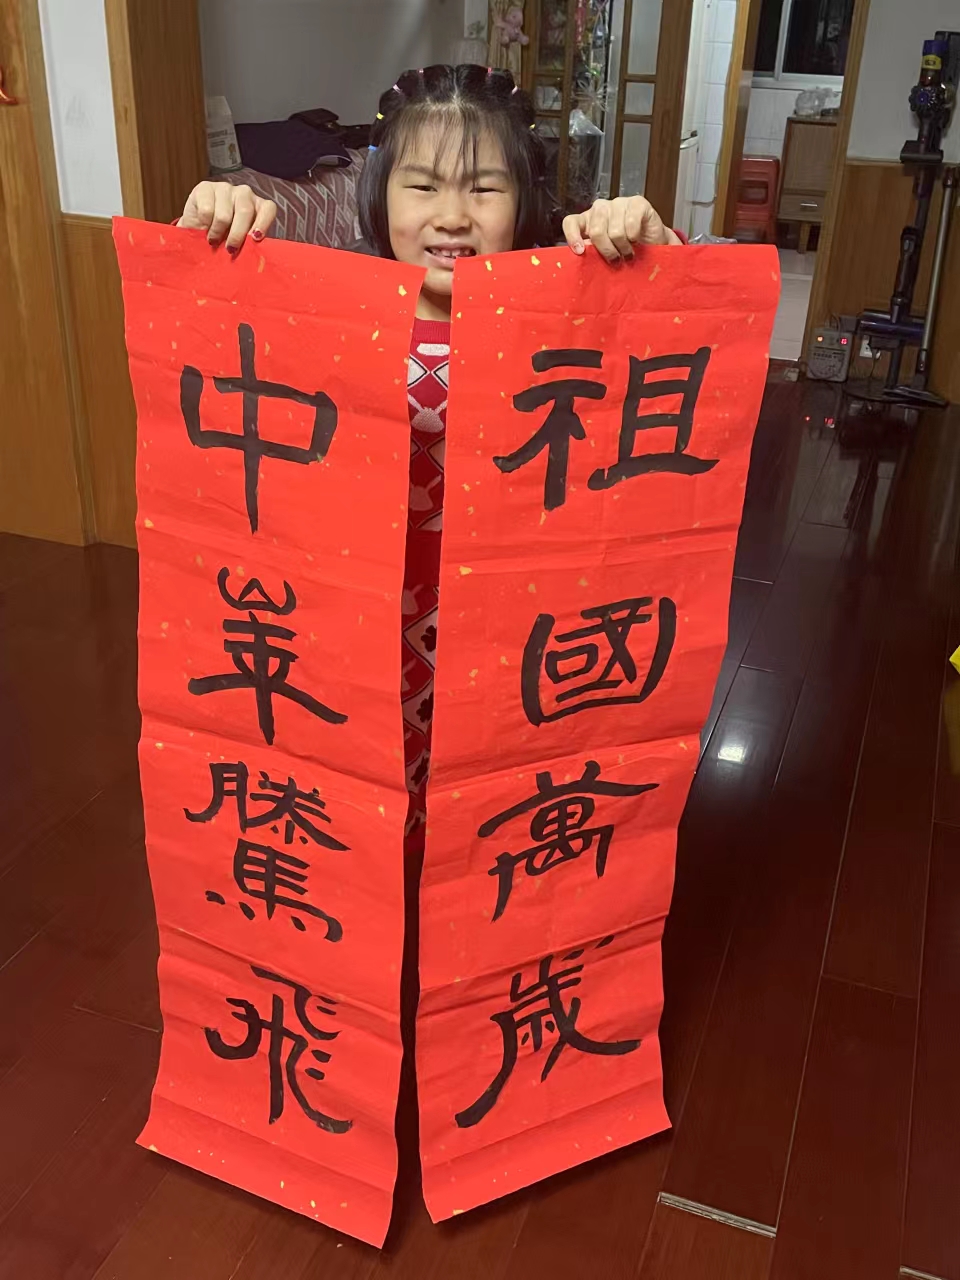 祖國萬歲
中華騰飛